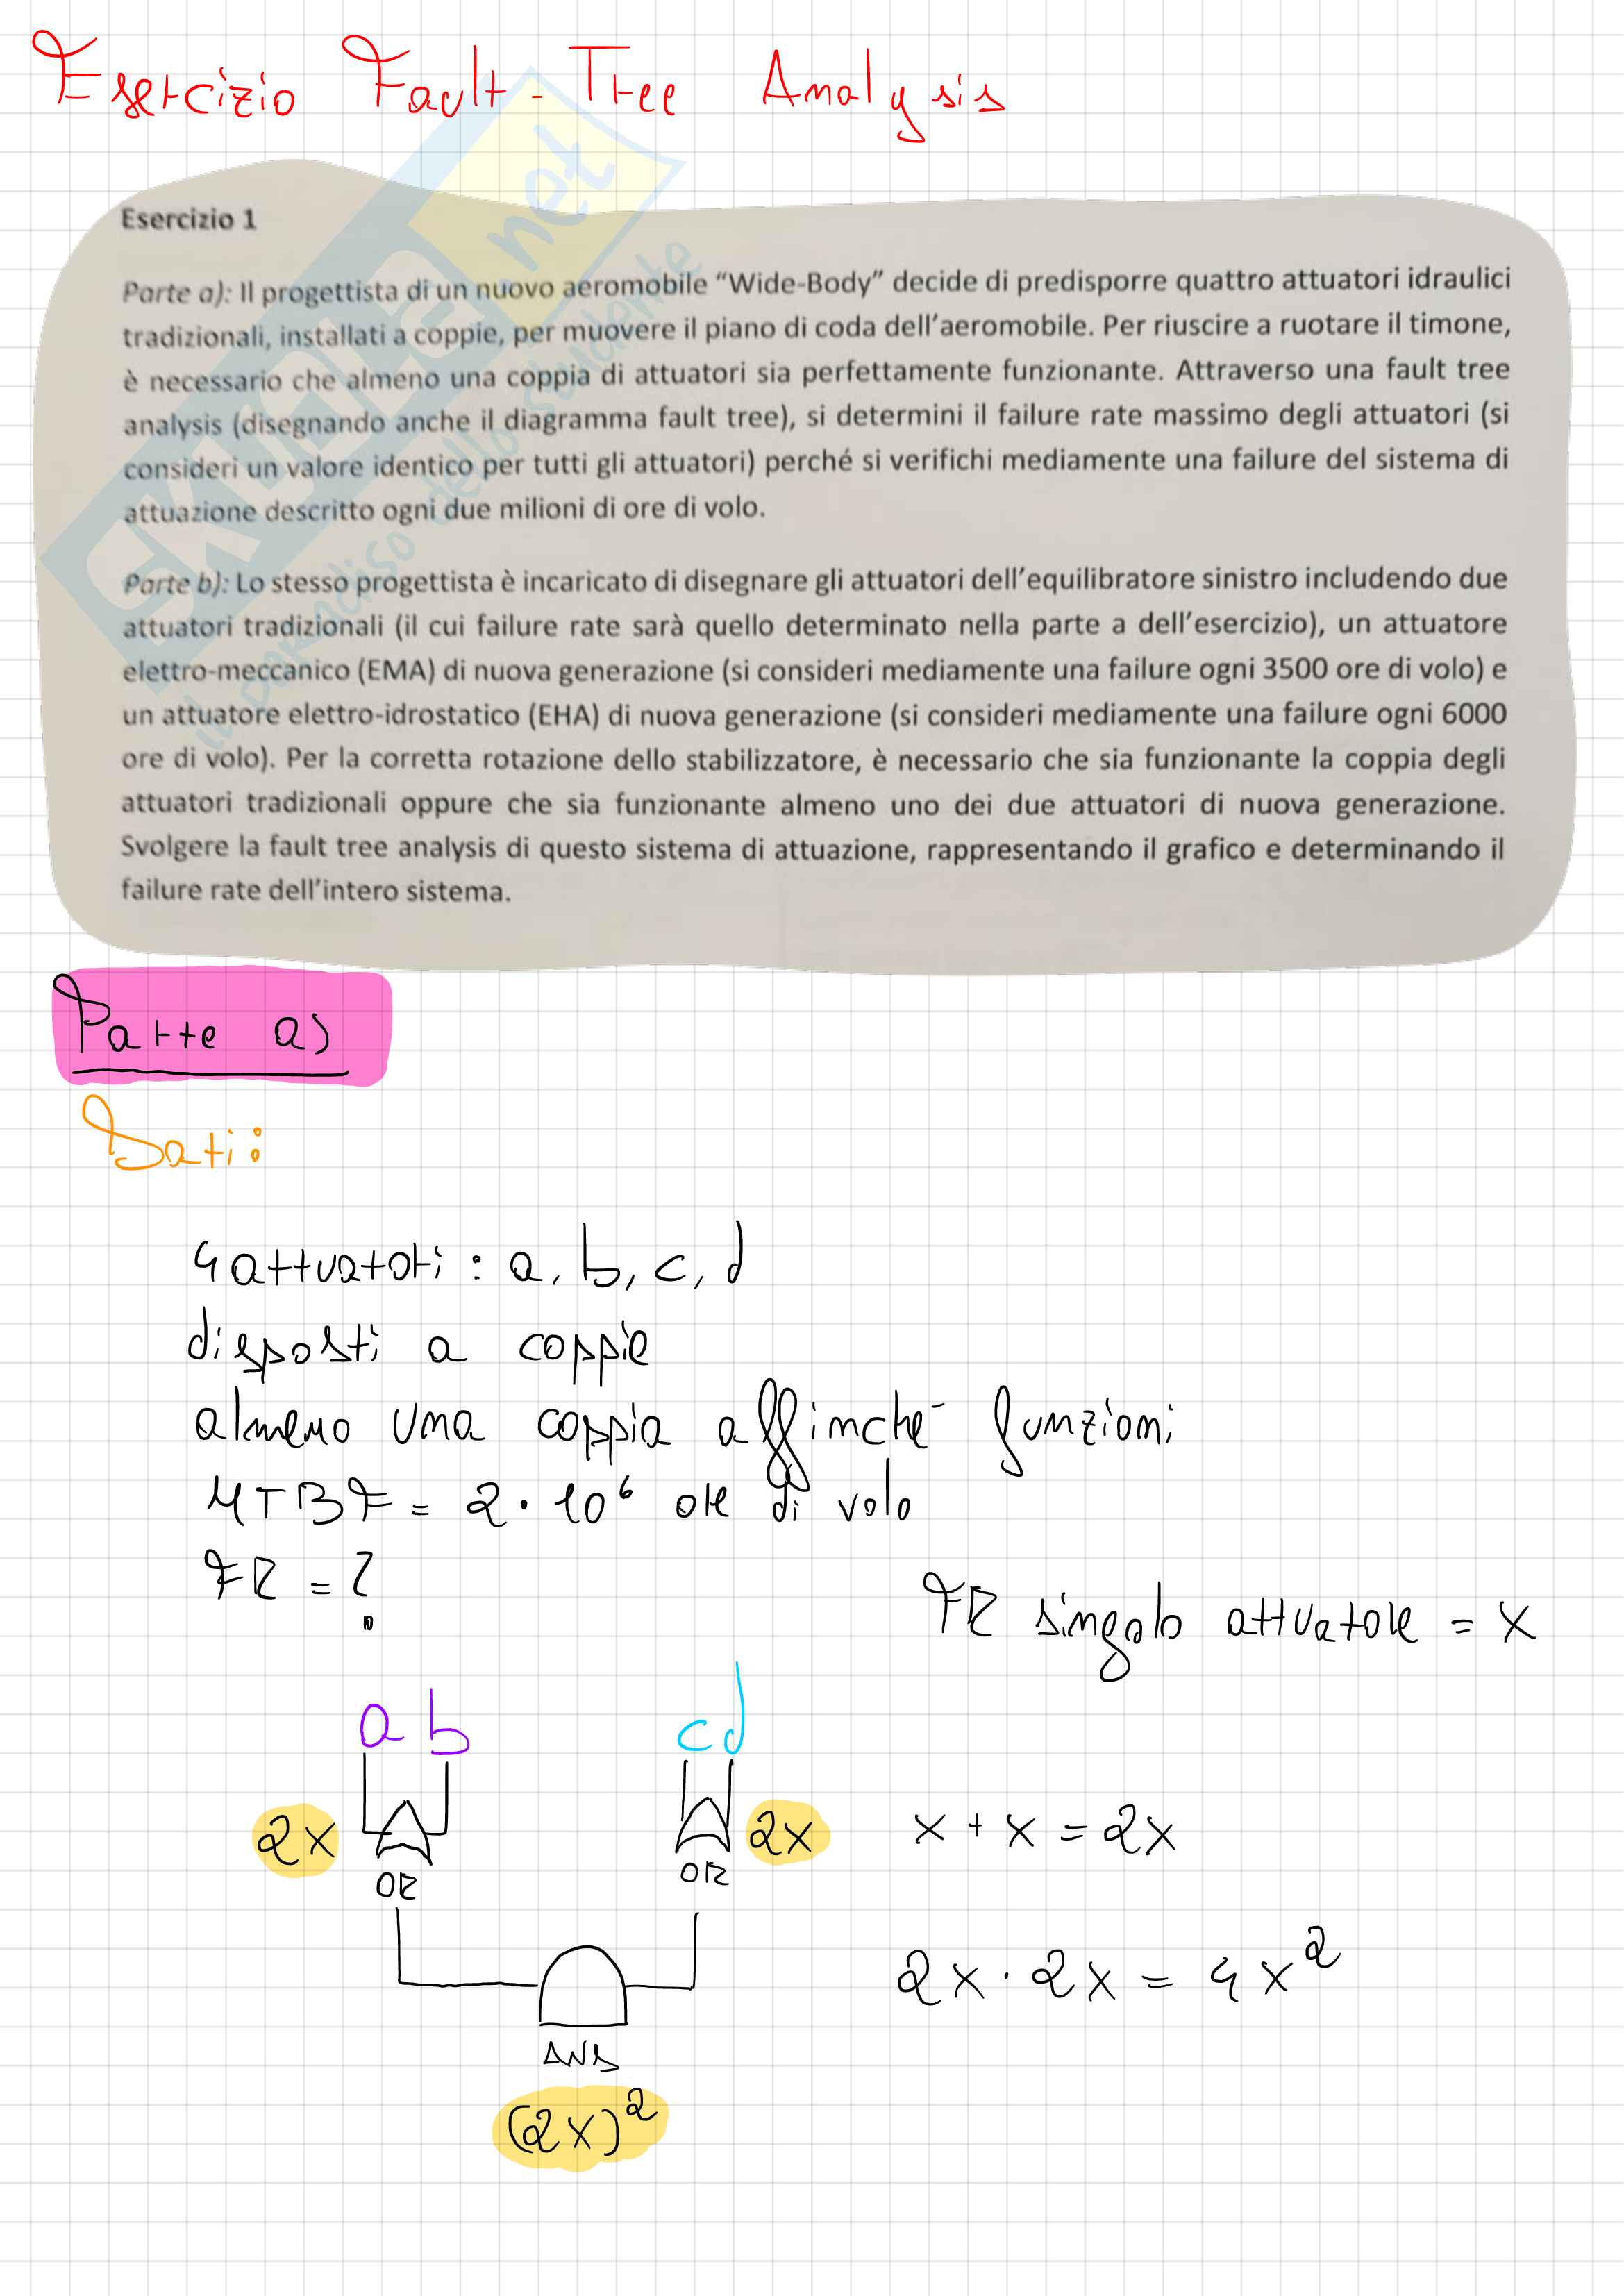 Esercizio Fault-Tree Analysis
Esercizio 1
Parte a): Il progettista di un nuovo aeromobile “Wide-Body” decide di predisporre quattro attuatori idraulici
tradizionali, installati a coppie, per muovere il piano di coda dell’aeromobile. Per riuscire a ruotare il timone,
è necessario che almeno una coppia di attuatori sia perfettamente funzionante. Attraverso una fault tree
analysis (disegnando anche il diagramma fault tree), si determini il failure rate massimo degli attuatori (si
consideri un valore identico per tutti gli attuatori) perché si verifichi mediamente una failure del sistema di
attuazione descritto ogni due milioni di ore di volo.
Parte b): Lo stesso progettista è incaricato di disegnare gli attuatori dell’equilibratore sinistro includendo due
attuatori tradizionali (il cui failure rate sarà quello determinato nella parte a dell’esercizio), un attuatore
elettro-meccanico (EMA) di nuova generazione (si consideri mediamente una failure ogni 3500 ore di volo) e
un attuatore elettro-idrostatico (EHA) di nuova generazione (si consideri mediamente una failure ogni 6000
ore di volo). Per la corretta rotazione dello stabilizzatore, è necessario che sia funzionante la coppia degli
attuatori tradizionali oppure che sia funzionante almeno uno dei due attuatori di nuova generazione.
Svolgere la fault tree analysis di questo sistema di attuazione, rappresentando il grafico e determinando il
failure rate dell’intero sistema.
SKUOLA.net
il paradiso dello studente
Parte a)
Dati:
4 attuatori : a, b, c, d
disposti a coppie
almeno una coppia affinché funzioni
MTBF = 2 · 10⁶ ore di volo
FR = ?
FR singolo attuatore = x
a b
c d
2x
2x
x + x = 2x
OR
OR
2x · 2x = 4x²
AND
(2x)²